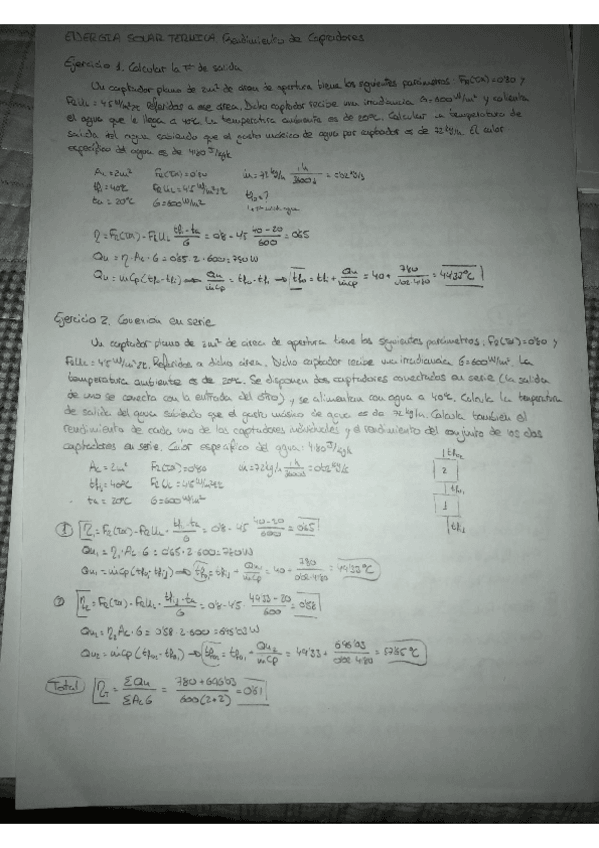 ENERGIA SOLAR TERMICA. Rendimiento de Captadores
Ejercicio 1. Calcular la Tª de salida
Un captador plano de 2m² de área de apertura tiene los siguientes parámetros: FR(τα)=0'80 y
FRUL = 4'5 W/m²ºC Referidos a ese área. Dicho captador recibe una irradiancia G=600 W/m² y calienta
el agua que le llega a 40ºC. La temperatura ambiente es de 20ºC. Calcular la temperatura de
salida del agua sabiendo que el gasto másico de agua por captador es de 72 kg/h. El calor
específico del agua es de 4180 J/kgK
Ac = 2m² FR(τα) = 0'80 ṁ = 72 kg/h · 1h/3600s = 0'02 kg/s
tfi = 40ºC FRUL = 4'5 W/m²ºC tfo = ?
ta = 20ºC G = 600 W/m²
η = FR(τα) - FRUL (tfi - ta)/G = 0'8 - 4'5 (40-20)/600 = 0'65
Qu = η · Ac · G = 0'65 · 2 · 600 = 780 W
Qu = ṁCp(tfo - tfi) → Qu/ṁCp = tfo - tfi → tfo = tfi + Qu/ṁCp = 40 + 780/(0'02·4180) = 49'33ºC
Ejercicio 2. Conexión en serie
Un captador plano de 2m² de área de apertura tiene los siguientes parámetros: FR(τα) = 0'80 y
FRUL = 4'5 W/m²ºC. Referidos a dicho área. Dicho captador recibe una irradiancia G=600 W/m². La
temperatura ambiente es de 20ºC. Se disponen dos captadores conectados en serie (la salida
de uno se conecta con la entrada del otro) y se alimentan con agua a 40ºC. Calcule la temperatura
de salida del agua sabiendo que el gasto másico de agua es de 72 kg/h. Calcule también el
rendimiento de cada uno de los captadores individuales y el rendimiento del conjunto de los dos
captadores en serie. Calor específico del agua: 4180 J/kgK
Ac = 2m² FR(τα) = 0'80 ṁ = 72 kg/h · h/3600s = 0'02 kg/s
tfi = 40ºC FRUL = 4'5 W/m²ºC
ta = 20ºC G = 600 W/m²
tfo2
2
tfo1
1
tfi1
① η1 = FR(τα) - FRUL · (tfi - ta)/G = 0'8 - 4'5 (40-20)/600 = 0'65
Qu1 = η1 · Ac · G = 0'65 · 2 · 600 = 780 W
Qu1 = ṁCp(tfo1 - tfi1) → tfo1 = tfi1 + Qu1/ṁCp = 40 + 780/(0'02·4180) = 49'33ºC
② η2 = FR(τα) - FRUL · (tfi2 - ta)/G = 0'8 - 4'5 · (49'33 - 20)/600 = 0'58
Qu2 = η2 Ac · G = 0'58 · 2 · 600 = 696'03 W
Qu2 = ṁCp (tfo2 - tfo1) → tfo2 = tfo1 + Qu2/ṁCp = 49'33 + 696'03/(0'02·4180) = 57'65ºC
Total ηT = ΣQu/ΣAcG = (780 + 696'03)/(600(2+2)) = 0'61